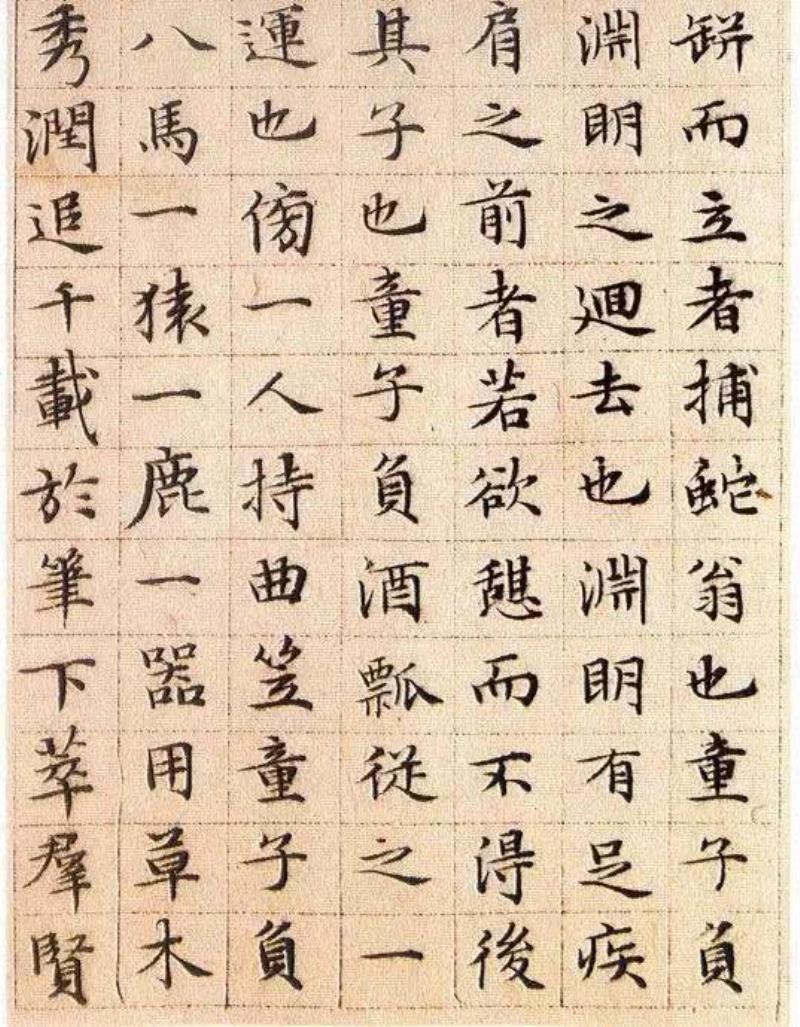 缾而立者捕蛇翁也童子負
淵明之迴去也淵明有足疾
肩之前者若欲憇而不得後
其子也童子負酒瓢從之一
運也傍一人持曲笠童子負
八馬一猿一鹿一器用草木
秀潤追千載於筆下萃羣賢